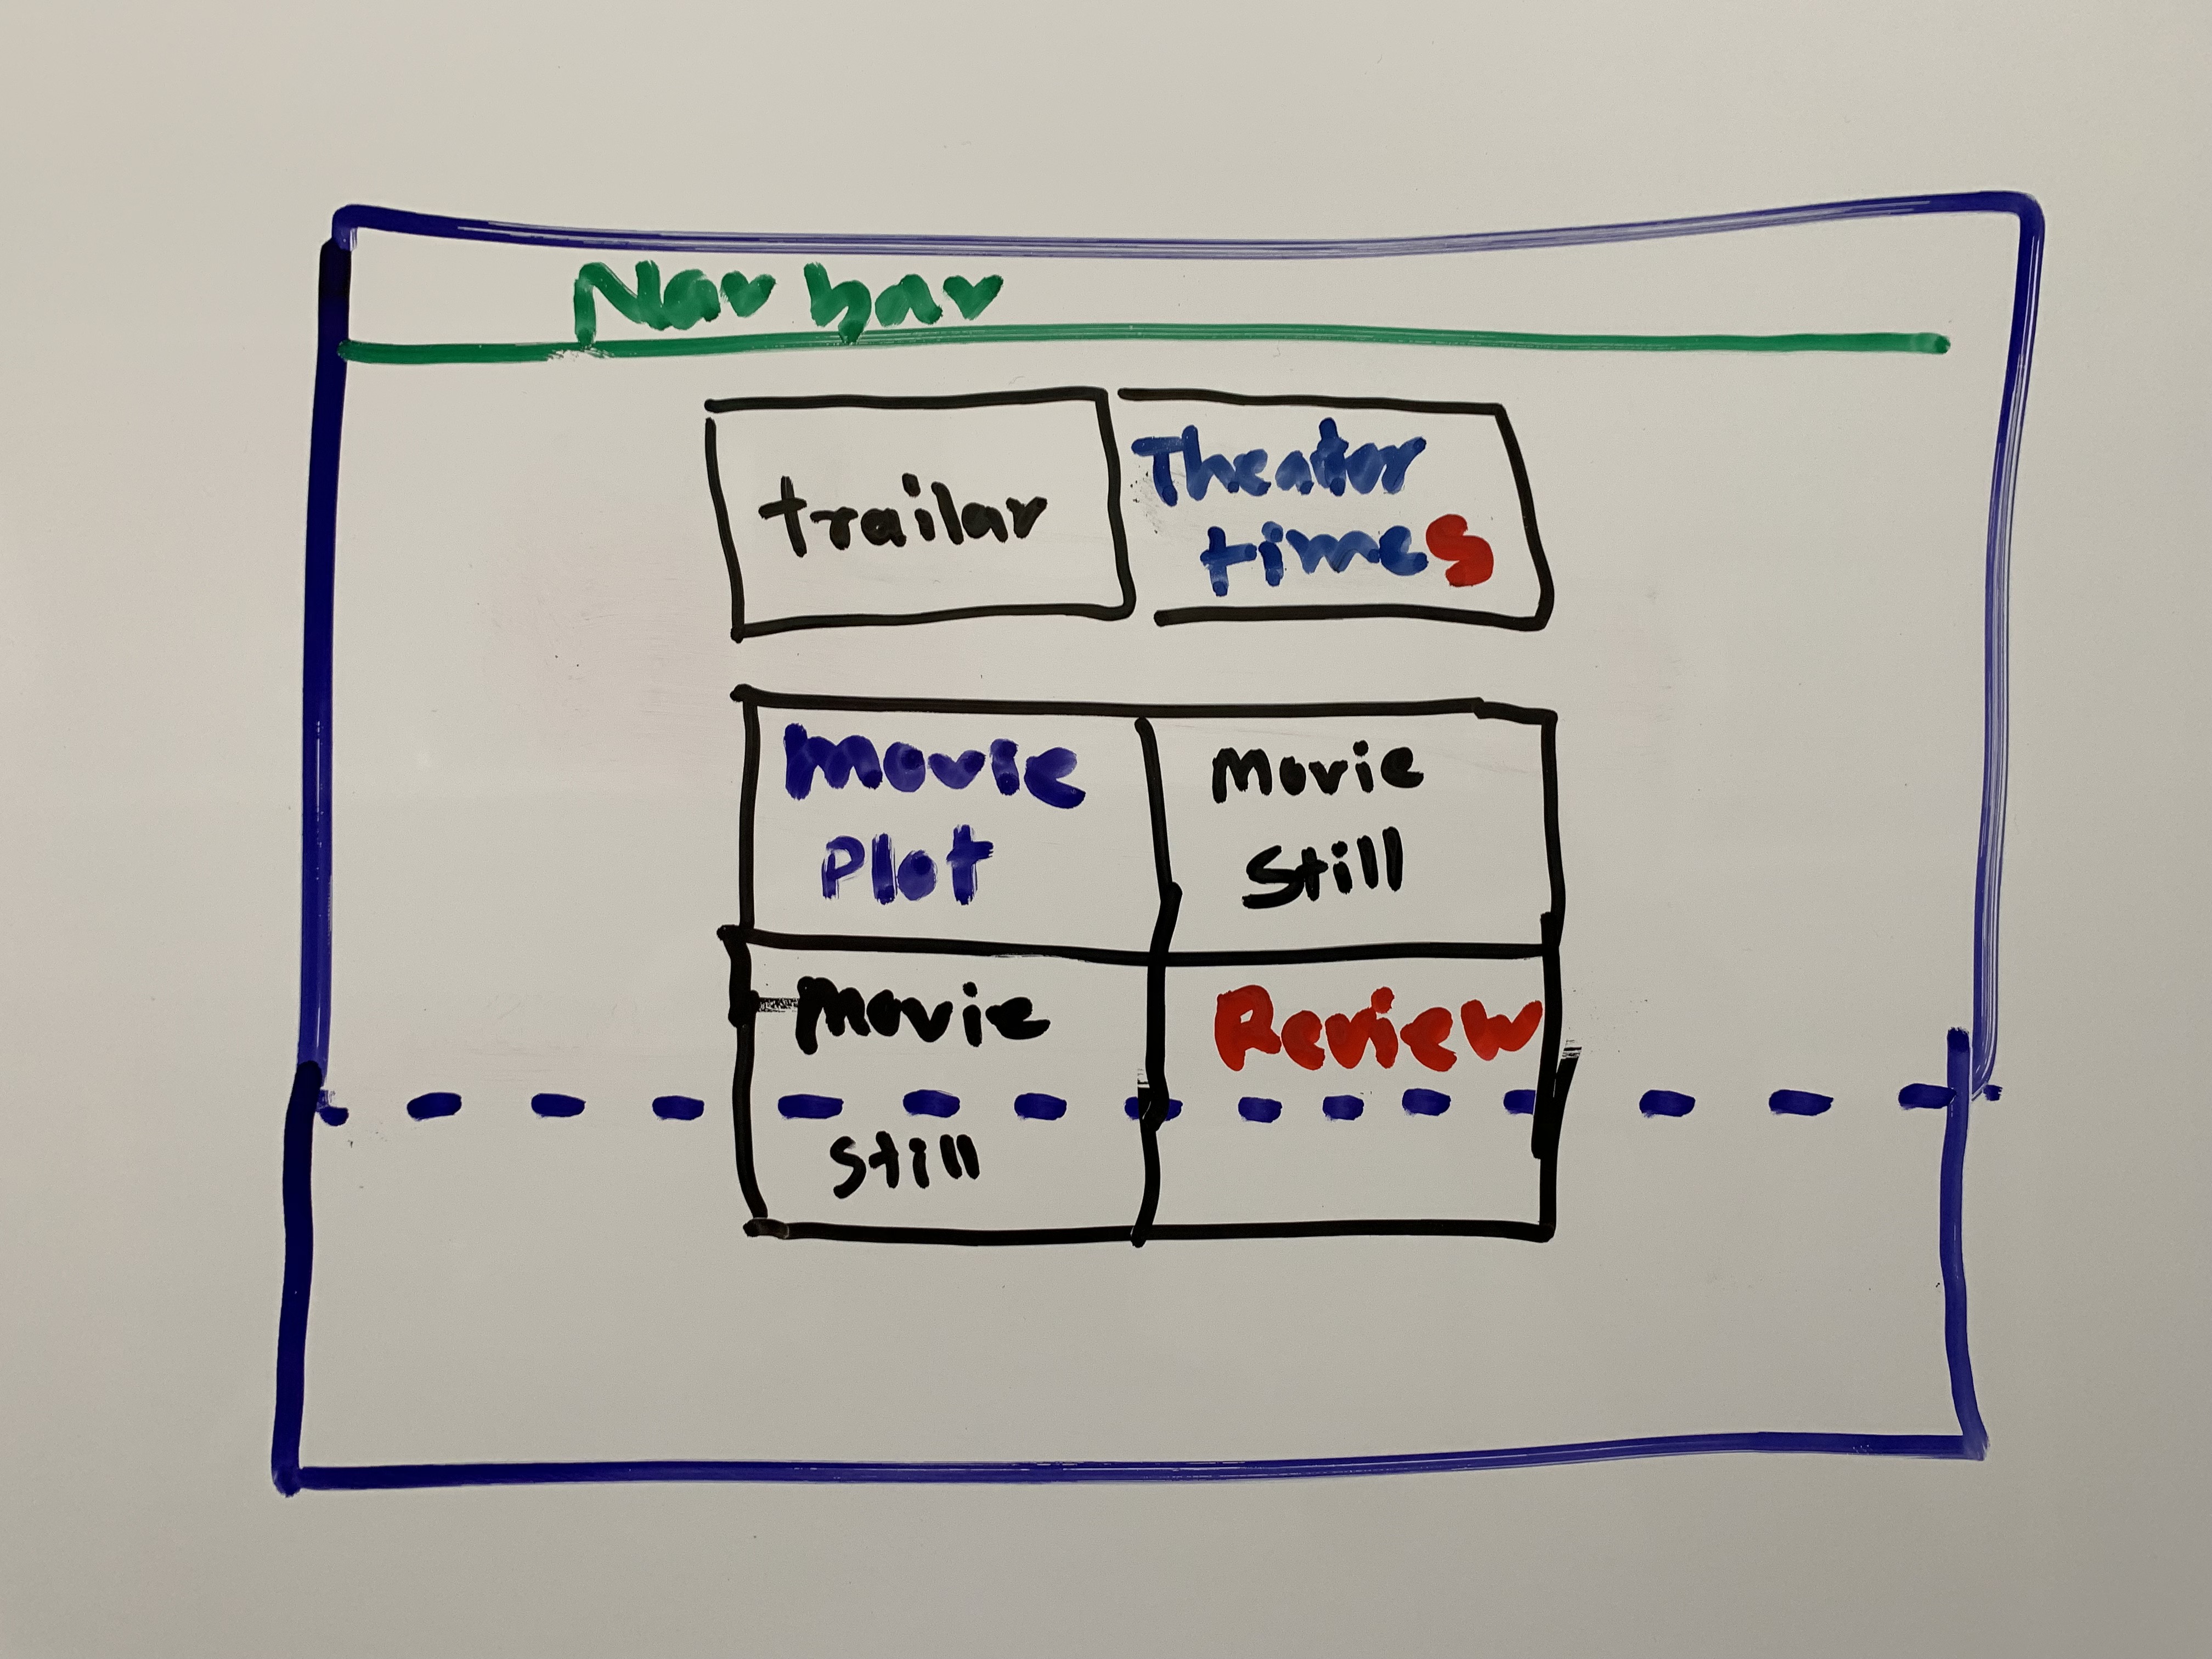 Nav bar
trailar
Theater
times
Movie
Plot
Movie
Still
Movie
Still
Review